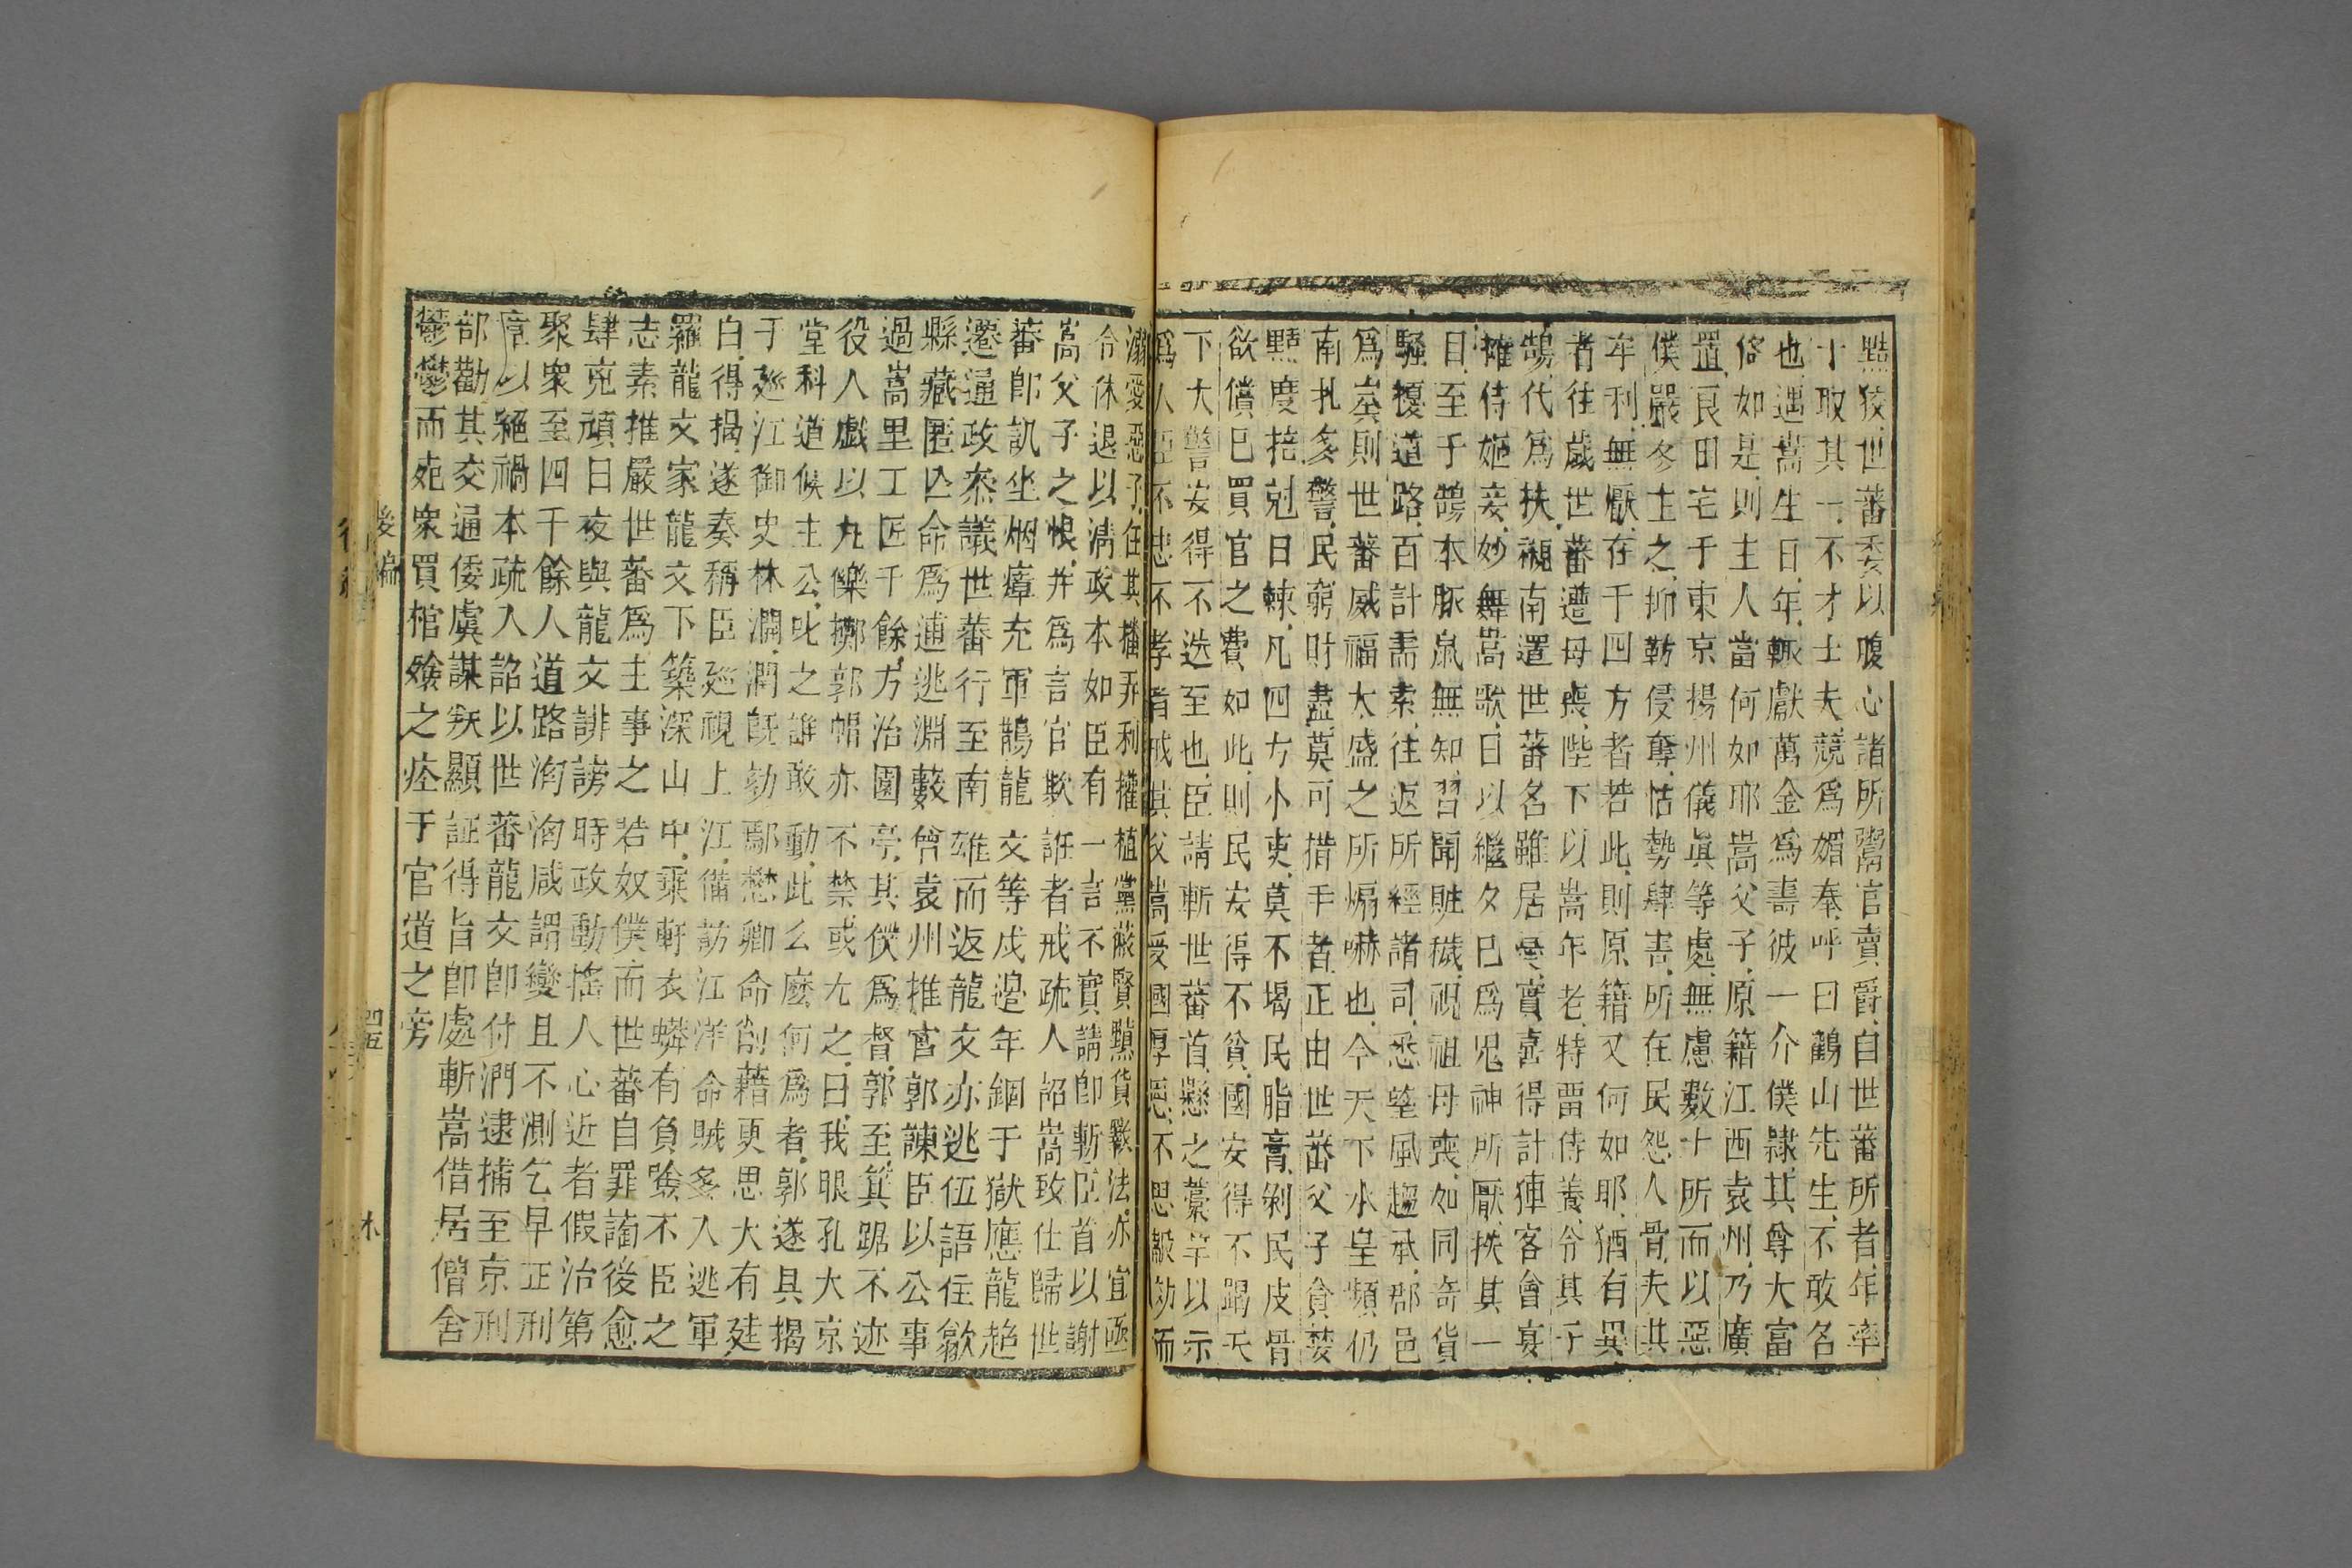 黠狡世蕃委以腹心諸所鬻官賣爵自世蕃所者年率
十取其一不才士夫競爲媚奉呼曰鶴山先生不敢名
也遇嵩生日年輒獻萬金爲壽彼一介僕隷其尊大富
侈如是則主人當何如耶嵩父子原籍江西袁州乃廣
置良田宅于東京揚州儀眞等處無慮數十所而以惡
僕嚴冬主之抑勒侵奪怙勢肆害所在民怨入骨夫其
牟利無厭在于四方者若此則原籍又何如耶猶有異
者往歲世蕃遭母喪陛下以嵩年老特畱侍養令其子
鵠代爲扶櫬南還世蕃名雖居憂實喜得計狎客曾宴
擁侍姬妾妙舞嵩歌日以繼夕巳爲鬼神所厭扶其一
目至于鵠本豚鼠無知習聞賍穢視祖母喪如同奇貨
騷擾道路百計需索往返所經諸司悉望風趨承郡邑
爲矣則世蕃威福太盛之所煽嚇也今天下水皇頻仍
南扎多警民窮財盡莫可措手者正由世蕃父子貪婪
黷度掊剋日棘凡四方小吏莫不竭民脂膏剝民皮骨
欲償巳買官之費如此則民安得不貧國安得不竭天
下大警安得不迭至也臣請斬世蕃首懸之藁竿以示
爲人臣不忠不孝者戒其父嵩受國厚恩不思報効而
溺愛惡子任其播弄利權植黨蔽賢黷貨斁法亦宜亟
令休退以淸政本如臣有一言不實請卽斬臣首以謝
嵩父子之恨并爲言官欺誑者戒疏入詔嵩致仕歸世
蕃卽訊坐烟瘴充軍鵠龍文等戍邉年錮于獄應龍趋
遷通政叅議世蕃行至南雄而返龍文亦逃伍語住歙
縣藏匿亾命爲逋逃淵藪嘗袁州推官郭諫臣以公事
過嵩里工匠千餘方治園亭其僕爲督郭至箕踞不迹
役人戲以九礫擲郭帽亦不禁或尤之曰我眼孔大京
堂科道候主公叱之誰敢動此么麼何爲者郭遂具揭
于廵江御史林潤潤旣劾鄢懋卿命削藉更思大有建
白得揭遂奏稱臣廵視上江備訪江洋命賊多入逃軍
羅龍文家龍文下築深山中乘軒衣蟒有負險不臣之
志素推嚴世蕃爲主事之若奴僕而世蕃自罪謫後愈
肆兇頑日夜與龍文誹謗時政動搖人心近者假治第
聚衆至四千餘人道路洶洶咸謂變且不測乞早正刑
章以絕禍本疏入詔以世蕃龍文卽付潤逮捕至京刑
部勸其交通倭虞謀叛顯証得旨卽處斬嵩借居僧舍
鬱鬱而死衆買棺殮之痊于官道之旁
後編